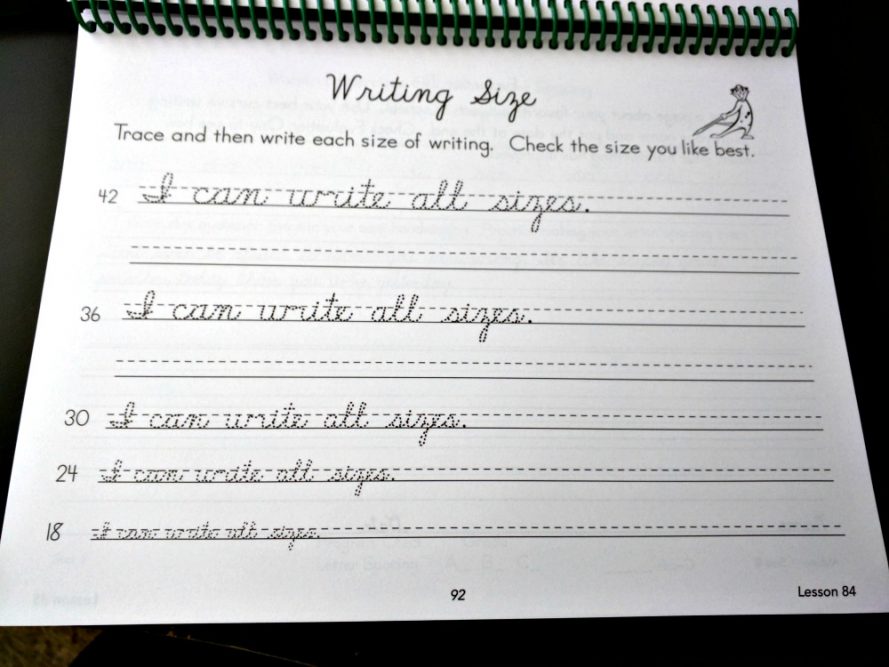 Writing Size
Trace and then write each size of writing. Check the size you like best.
42 I can write all sizes.
36 I can write all sizes.
30 I can write all sizes.
24 I can write all sizes.
18 I can write all sizes.
92 Lesson 84